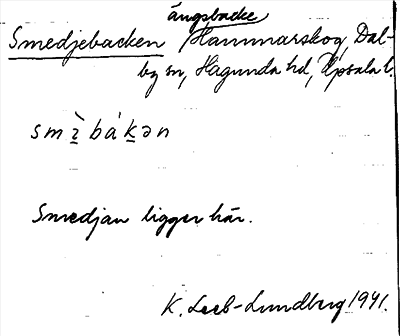 ängsbacke
Smedjebacken Hammarskog, Dal-
by sn, Hagunda hd, Upsala l.
smὶ̱báḵən
Smedjan ligger här.
K. Leeb-Lundberg 1941.